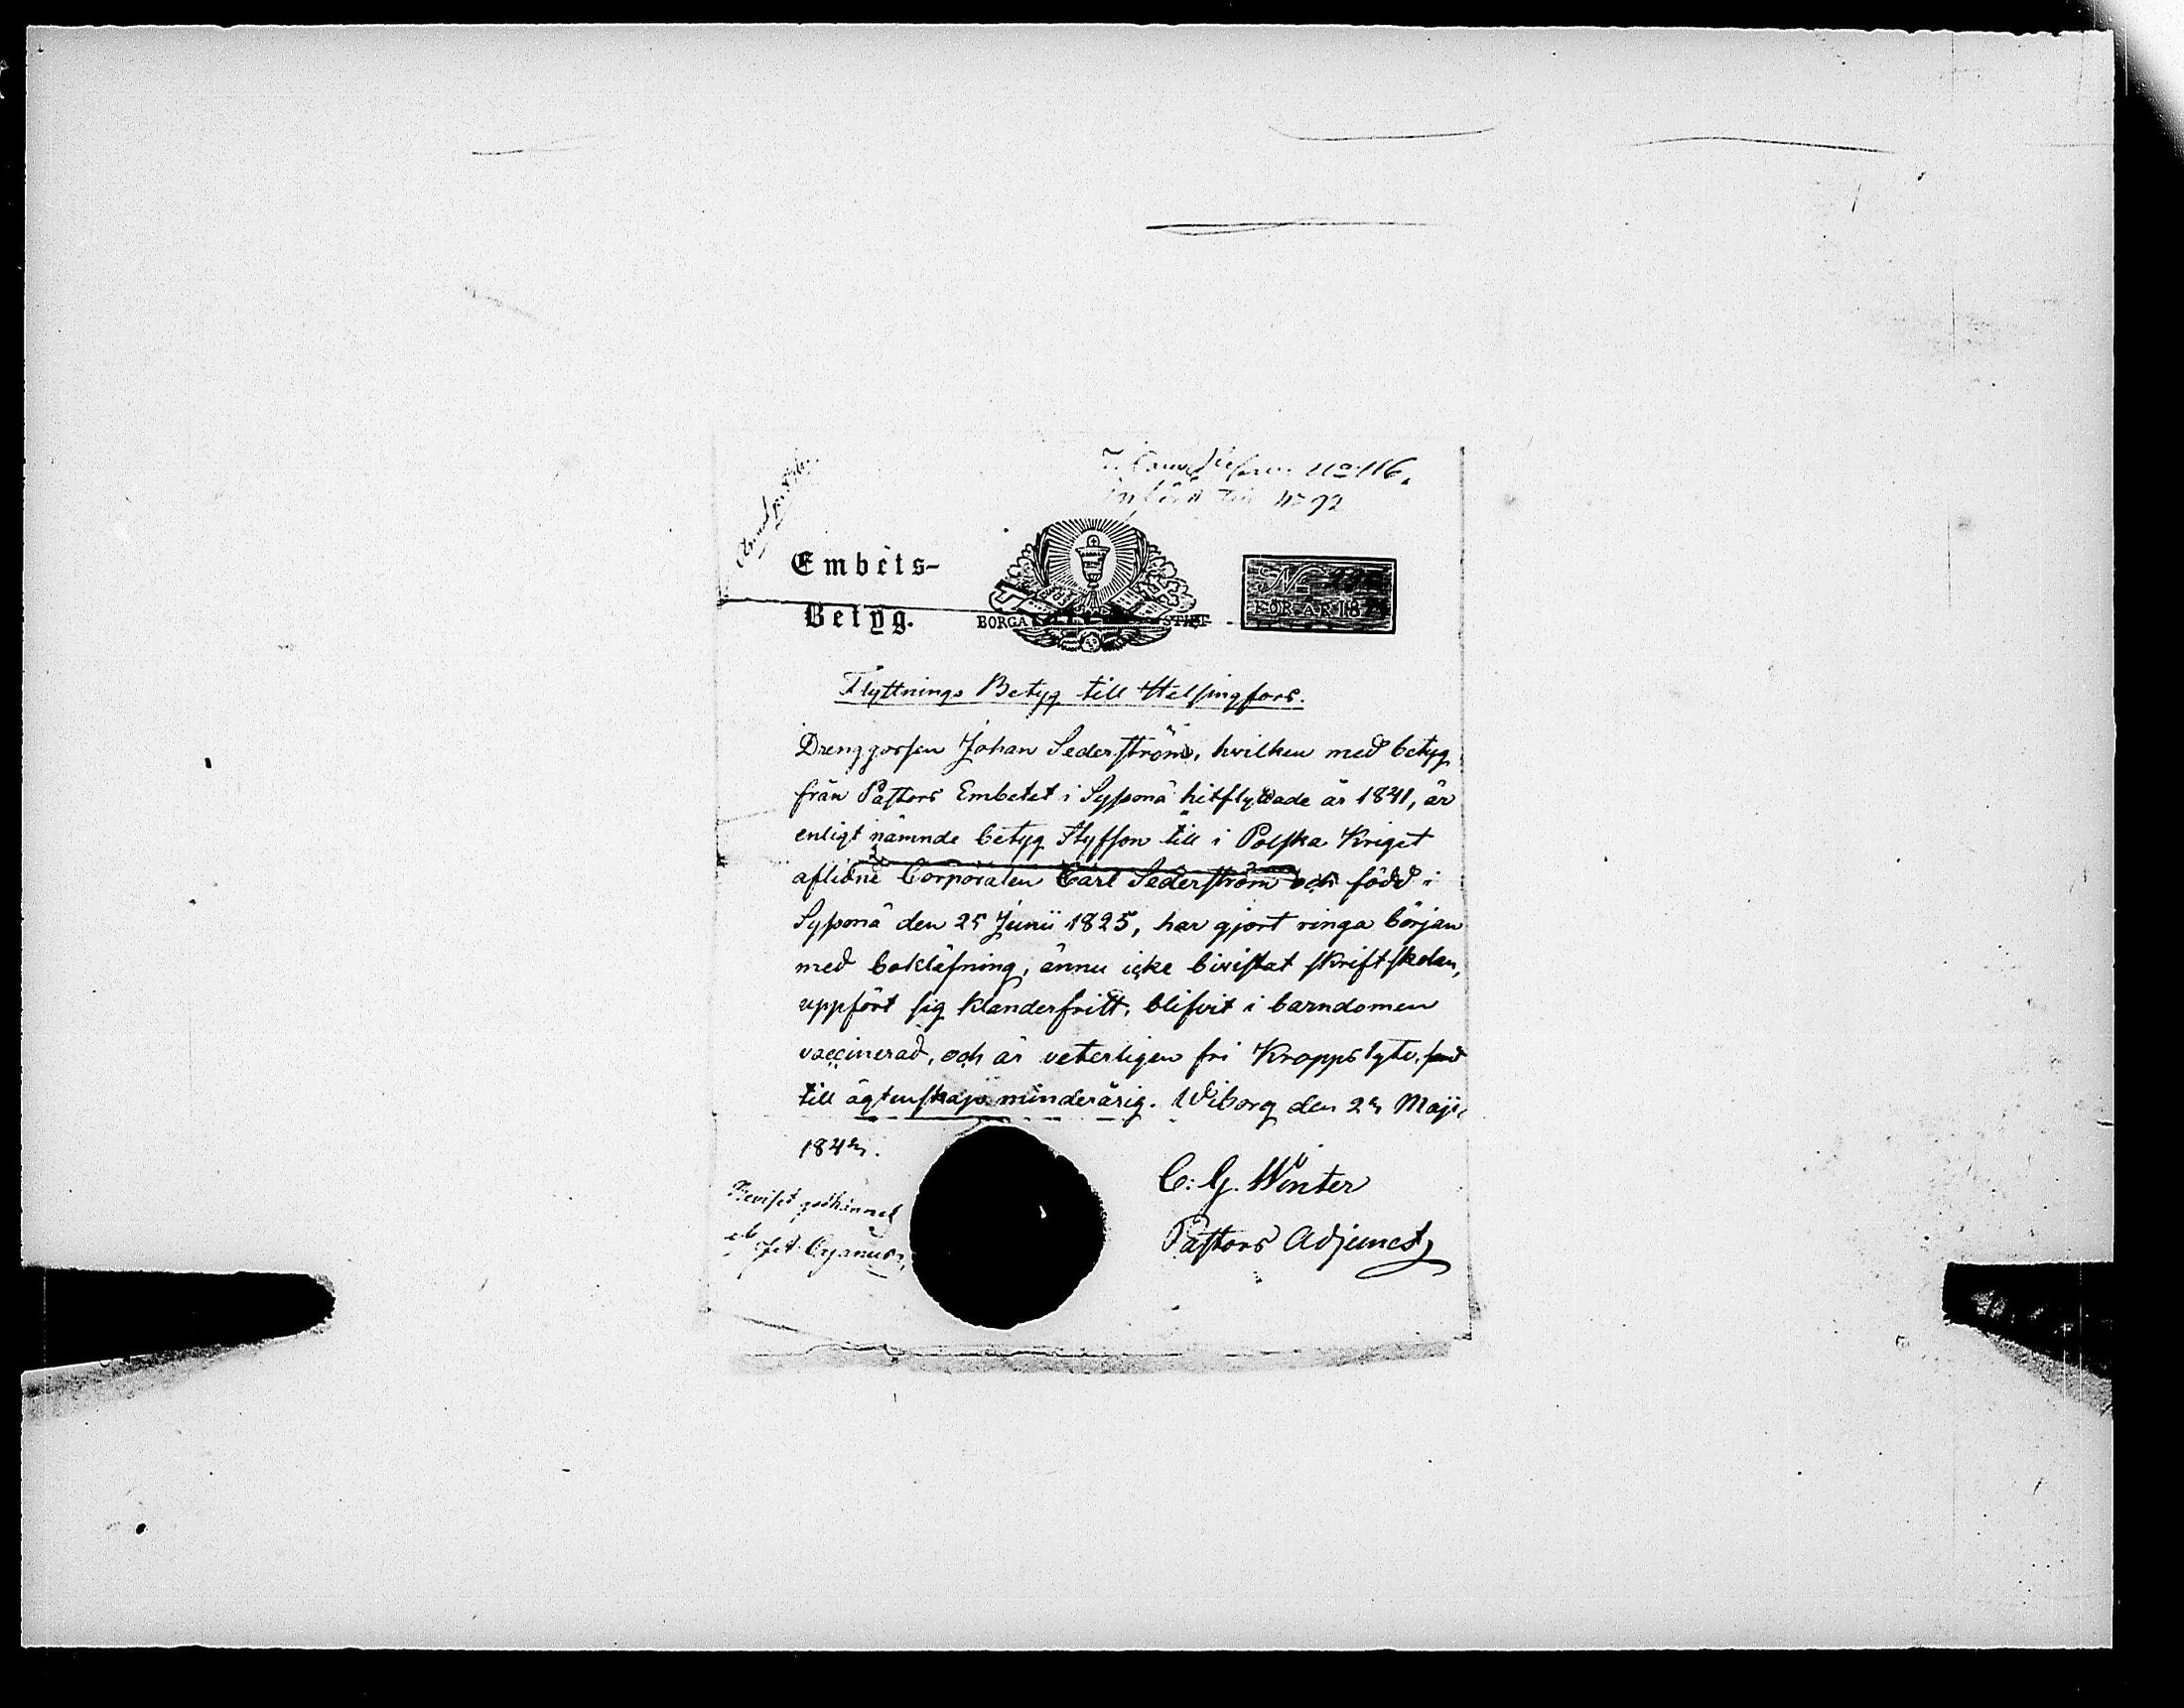 No 116.
No 92
Embets-
Betyg.
BORGA STIFT
No
FÖR ÅR 18
Flyttnings Betyg till Helsingfors.
Drenggossen Johan Sederström, hvilken med betyg
från Pastors Embetet i Syssmä hitflyttade år 1841, är
enligt nämnde betyg Styfson till i Polska Kriget
aflidne Corporalen Carl Sederström och född i
Syssmä den 25 Junii 1825, har gjort ringa början
med bokläsning, ännu icke bivistat skriftskolan,
uppfört sig klanderfritt, blifvit i barndomen
vaccinerad, och är veterligen fri Kroppslyte, samt
till ägtenskap minderårig. Wiborg den 2 Maji
184
C: G. Winter
Pastors Adjunct